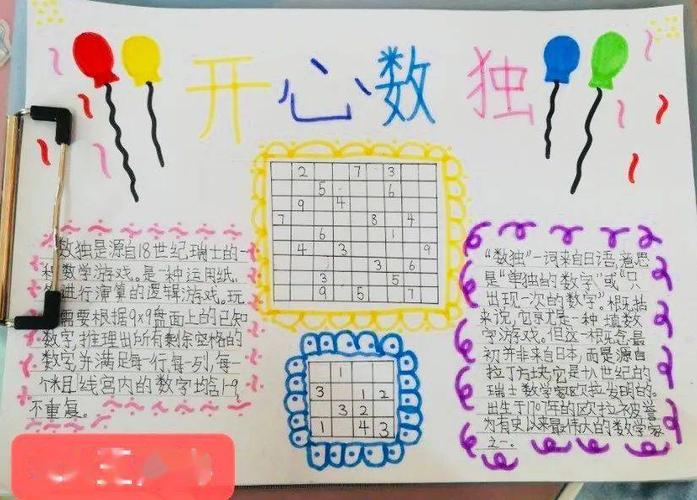 开心数独
2 7 3
5 6
9 4
7 3 4
6 1
4 3 9
3 5
9 5 7
数独是源自18世纪瑞士的
一种数学游戏。是一种运用纸、
进行演算的逻辑游戏。玩
需要根据9×9盘面上的已知
数字,推理出所有剩余空格的
数字,并满足每一行、每一列、每一
个粗线宫内的数字均含1-9,
不重复。
1
3 1 2
3 2
1 4 3
"数独"一词来自日语,意思
是"单独的数字"或"只
出现一次的数字"概括
来说,它就是一种填数
字游戏。但这一概念最
初并非来自日本,而是源自
拉丁方块,它是十八世纪的
瑞士数学家欧拉发明的。
出生于1707年的欧拉被誉
为有史以来最伟大的数学家
之一。